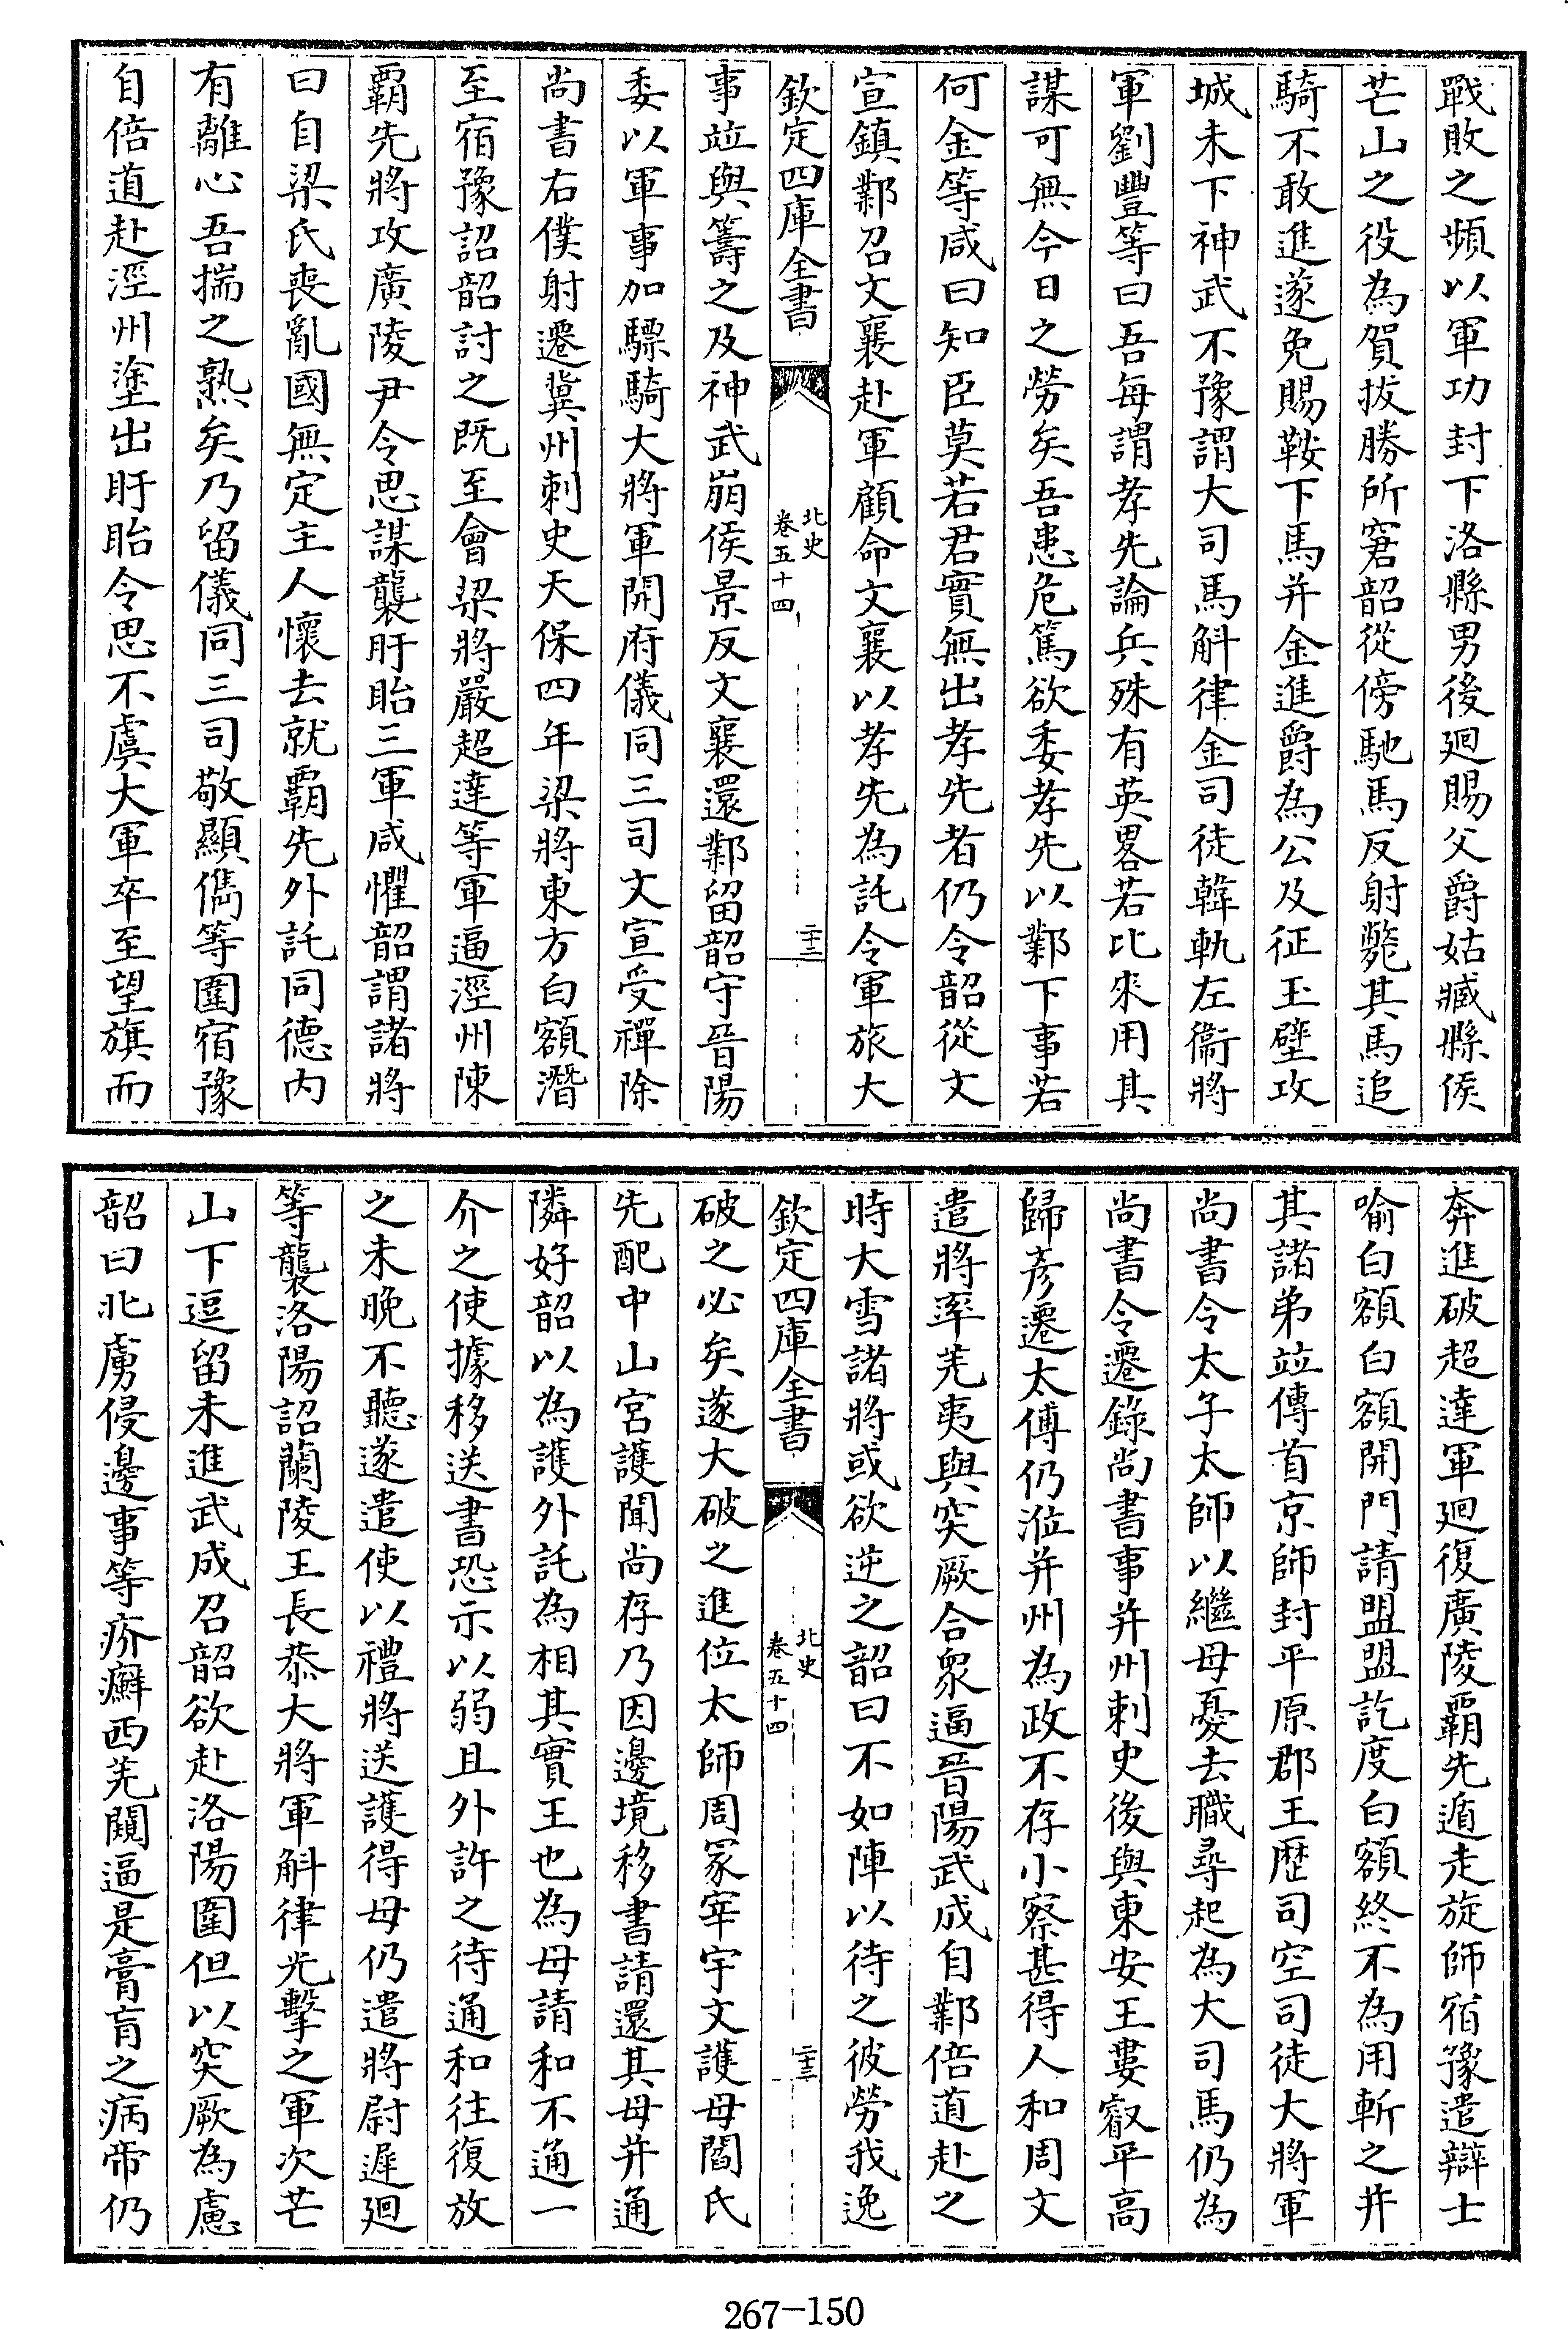 戰敗之頻以軍功封下洛縣男後廻賜父爵姑臧縣侯
芒山之役為賀拔勝所窘韶從傍馳馬反射斃其馬追
騎不敢進遂免賜鞍下馬并金進爵為公及征玉壁攻
城未下神武不豫謂大司馬斛律金司徒韓軌左衞將
軍劉豐等曰吾每謂孝先論兵殊有英畧若比來用其
謀可無今日之勞矣吾患危篤欲委孝先以鄴下事若
何金等咸曰知臣莫若君實無出孝先者仍令韶從文
宣鎮鄴召文襄赴軍顧命文襄以孝先為託令軍旅大
欽定四庫全書
北史
卷五十四
二十二
事竝與籌之及神武崩侯景反文襄還鄴留韶守晉陽
委以軍事加驃騎大將軍開府儀同三司文宣受禪除
尚書右僕射遷冀州刺史天保四年梁將東方白額潛
至宿豫詔韶討之既至會梁將嚴超達等軍逼涇州陳
霸先將攻廣陵尹令思謀襲盱眙三軍咸懼韶謂諸將
曰自梁氏喪亂國無定主人懷去就霸先外託同德内
有離心吾揣之熟矣乃留儀同三司敬顯儁等圍宿豫
自倍道赴涇州塗出盱眙令思不虞大軍卒至望旗而
奔進破超達軍廻復廣陵霸先遁走旋師宿豫遣辯士
喻白額白額開門請盟盟訖度白額終不為用斬之并
其諸弟竝傳首京師封平原郡王歷司空司徒大將軍
尚書令太子太師以繼母憂去職尋起為大司馬仍為
尚書令遷錄尚書事并州刺史後與東安王婁叡平高
歸彥遷太傅仍涖并州為政不存小察甚得人和周文
遣將率羌夷與突厥合衆逼晉陽武成自鄴倍道赴之
時大雪諸將或欲逆之韶曰不如陣以待之彼勞我逸
欽定四庫全書
北史
卷五十四
二十三
破之必矣遂大破之進位太師周冢宰宇文護母閻氏
先配中山宮護聞尚存乃因邊境移書請還其母并通
隣好韶以為護外託為相其實王也為母請和不通一
介之使據移送書恐示以弱且外許之待通和往復放
之未晚不聽遂遣使以禮將送護得母仍遣將尉遲廻
等襲洛陽詔蘭陵王長恭大將軍斛律光擊之軍次芒
山下逗留未進武成召韶欲赴洛陽圍但以突厥為慮
韶曰北虜侵邊事等疥癬西羌闚逼是膏肓之病帝仍
267-150